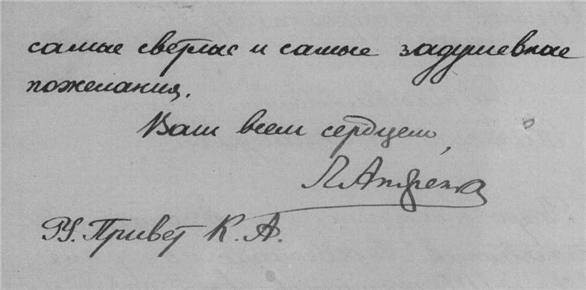 самые светлые и самые задушевные
пожелания.
Ваш всем сердцем,
P.S. Привет К. А.